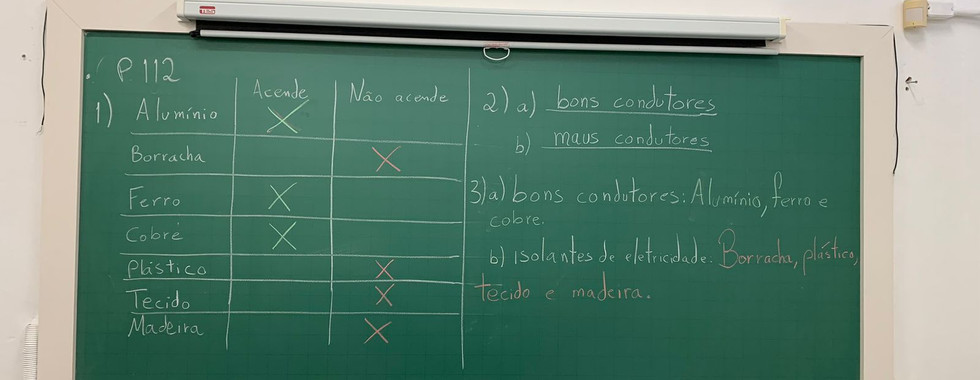 P 112
Acende Não acende
1) Alumínio X
Borracha X
Ferro X
Cobre X
Plástico X
Tecido X
Madeira X
2) a) bons condutores
b) maus condutores
3) a) bons condutores: Alumínio, ferro e
cobre.
b) Isolantes de eletricidade: Borracha, plástico,
tecido e madeira.